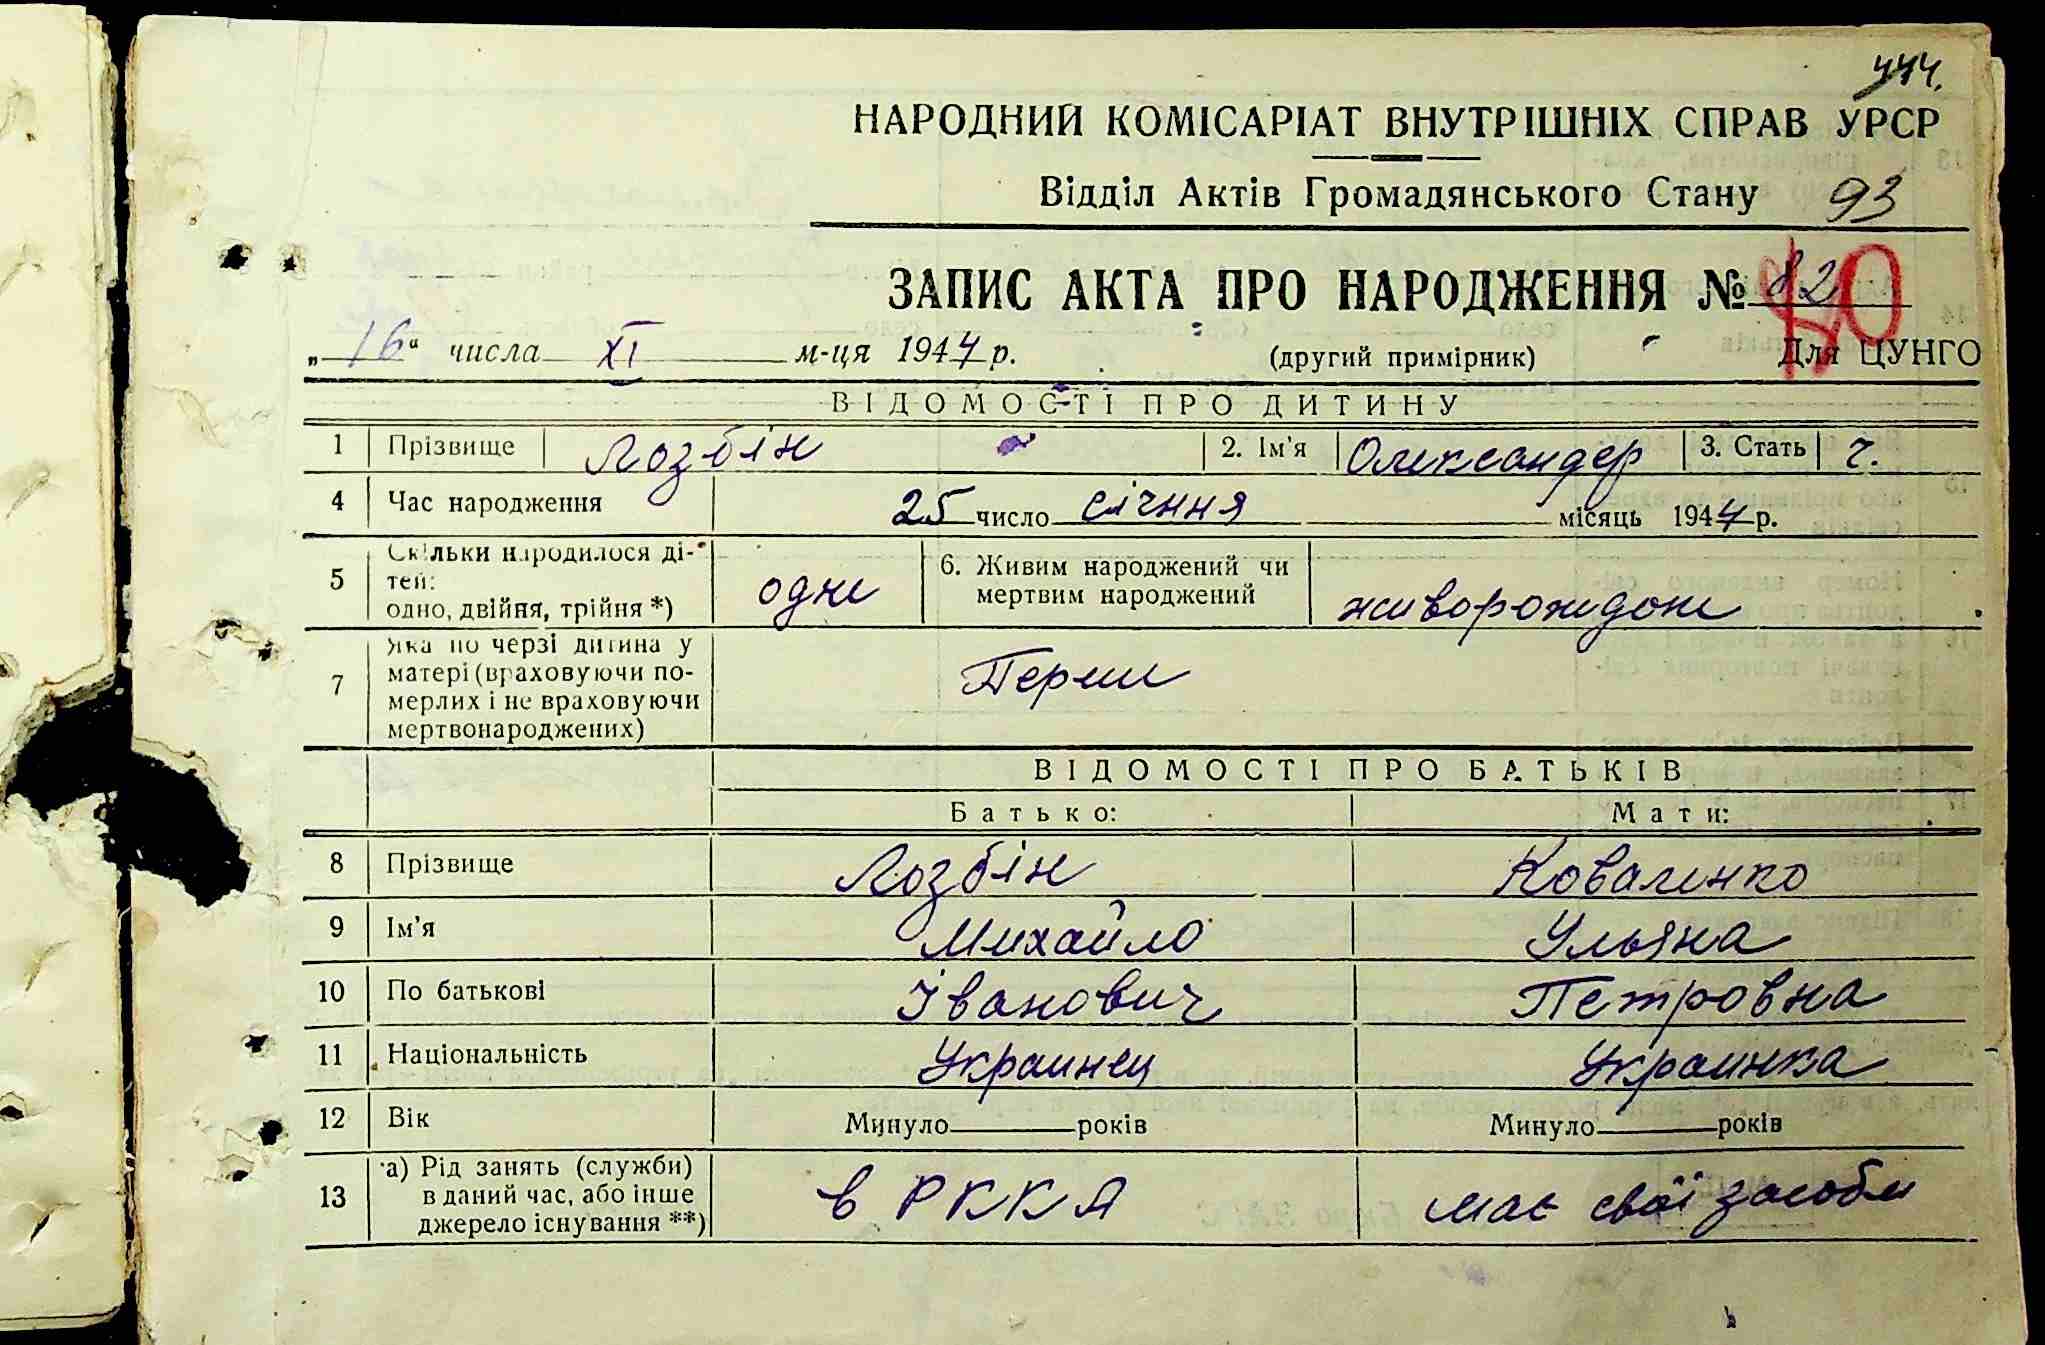 444.
НАРОДНИЙ КОМІСАРІАТ ВНУТРІШНІХ СПРАВ УРСР
Відділ Актів Громадянського Стану 93
ЗАПИС АКТА ПРО НАРОДЖЕННЯ № 82
„16“ числа XI м-ця 1944 р. (другий примірник) Для ЦУНГО
ВІДОМОСТІ ПРО ДИТИНУ
1 Прізвище Лозбін 2. Ім'я Олександер 3. Стать ч.
4 Час народження 25 число січння місяць 1944 р.
5 Скільки народилося ді-
тей:
одно, двійня, трійня *) одне 6. Живим народжений чи
мертвим народжений живорождоне
7 Яка по черзі дитина у
матері (враховуючи по-
мерлих і не враховуючи
мертвонароджених) Перше
ВІДОМОСТІ ПРО БАТЬКІВ
Батько: Мати:
8 Прізвище Лозбін Коваленко
9 Ім'я Михайло Ульяна
10 По батькові Іванович Петровна
11 Національність Украинец Украинка
12 Вік Минуло років Минуло років
13 а) Рід занять (служби)
в даний час, або інше
джерело існування **) в РККА має свої засоби